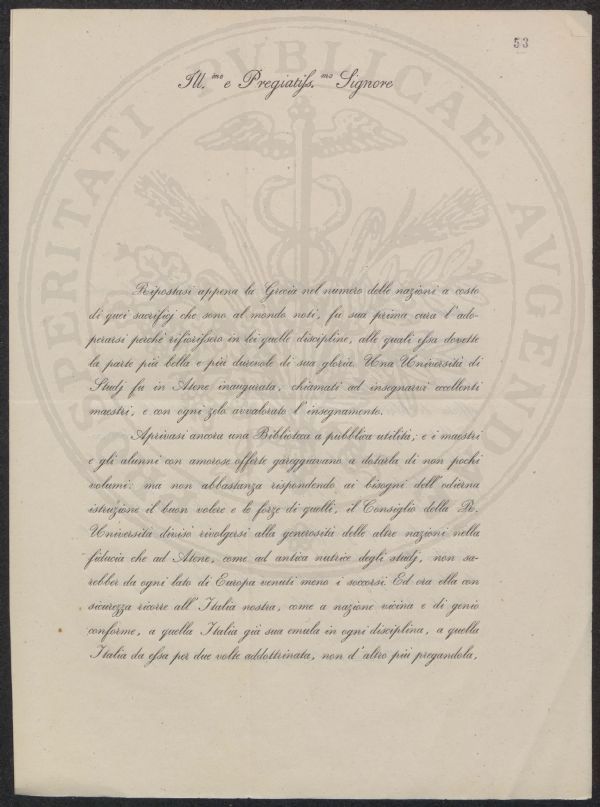 53
Ill.mo e Pregiatiss.mo Signore
Ripostasi appena la Grecia nel numero delle nazioni a costo
di quei sacrifizj che sono al mondo noti, fu sua prima cura l'ado-
perarsi perchè rifiorissero in lei quelle discipline, alle quali essa dovette
la parte più bella e più durevole di sua gloria. Una Università di
Studj fu in Atene inaugurata, chiamati ad insegnarvi eccellenti
maestri, e con ogni zelo avvalorato l'insegnamento.
Aprivasi ancora una Biblioteca a pubblica utilità; e i maestri
e gli alunni con amorose offerte gareggiavano a dotarla di non pochi
volumi: ma non abbastanza rispondendo ai bisogni dell'odierna
istruzione il buon volere e le forze di quelli, il Consiglio della R.
Università divisò rivolgersi alla generosità delle altre nazioni nella
fiducia che ad Atene, come ad antica nutrice degli studj, non sa-
rebber da ogni lato di Europa venuti meno i soccorsi. Ed ora ella con
sicurezza ricorre all'Italia nostra, come a nazione vicina e di genio
conforme, a quella Italia già sua emula in ogni disciplina, a quella
Italia da essa per due volte addottrinata, non d'altro più pregandola,
PROSPERITATI PUBLICAE AUGEND